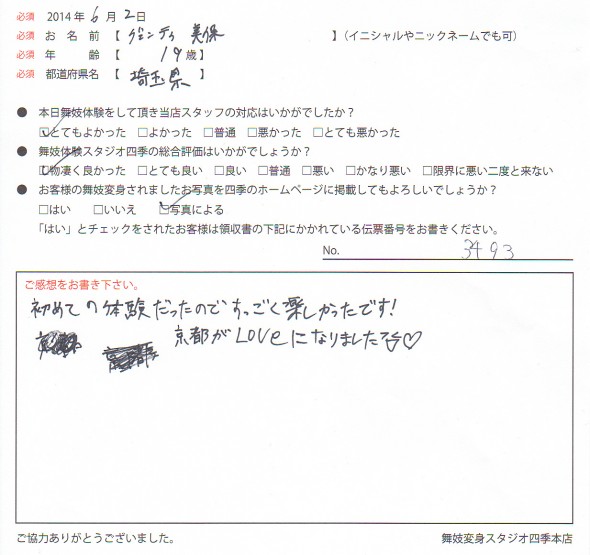 必須 2014年6月2日
必須 お名前【 グエンティ 美保 】(イニシャルやニックネームでも可)
必須 年齢【 19歳】
必須 都道府県名【 埼玉県 】
● 本日舞妓体験をして頂き当店スタッフの対応はいかがでしたか?
☑とてもよかった □よかった □普通 □悪かった □とても悪かった
● 舞妓体験スタジオ四季の総合評価はいかがでしょうか?
☑物凄く良かった □とても良い □良い □普通 □悪い □かなり悪い □限界に悪い二度と来ない
● お客様の舞妓変身されましたお写真を四季のホームページに掲載してもよろしいでしょうか?
□はい □いいえ ☑写真による
「はい」とチェックをされたお客様は領収書の下記にかかれている伝票番号をお書きください。
No. 3493
ご感想をお書き下さい。
初めての体験だったのですっごく楽しかったです!
京都がLOVEになりました♡
ご協力ありがとうございました。 舞妓変身スタジオ四季本店